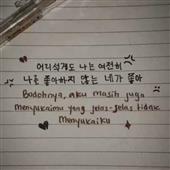 어리석게도 나는 여전히
나를 좋아하지 않는 네가 좋아
Bodohnya, aku masih juga
menyukaimu yang jelas-jelas tidak
menyukaiku